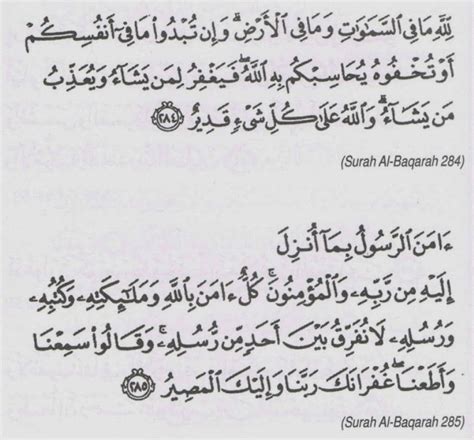 لِّلَّهِ مَا فِي ٱلسَّمَٰوَٰتِ وَمَا فِي ٱلْأَرْضِ ۗ وَإِن تُبْدُوا۟ مَا فِيٓ أَنفُسِكُمْ
أَوْ تُخْفُوهُ يُحَاسِبْكُم بِهِ ٱللَّهُ ۖ فَيَغْفِرُ لِمَن يَشَآءُ وَيُعَذِّبُ
مَن يَشَآءُ ۗ وَٱللَّهُ عَلَىٰ كُلِّ شَىْءٍ قَدِيرٌ ٢٨٤
(Surah Al-Baqarah 284)
ءَامَنَ ٱلرَّسُولُ بِمَآ أُنزِلَ
إِلَيْهِ مِن رَّبِّهِۦ وَٱلْمُؤْمِنُونَ ۚ كُلٌّ ءَامَنَ بِٱللَّهِ وَمَلَٰٓئِكَتِهِۦ وَكُتُبِهِۦ
وَرُسُلِهِۦ لَا نُفَرِّقُ بَيْنَ أَحَدٍ مِّن رُّسُلِهِۦ ۚ وَقَالُوا۟ سَمِعْنَا
وَأَطَعْنَا ۖ غُفْرَانَكَ رَبَّنَا وَإِلَيْكَ ٱلْمَصِيرُ ٢٨٥
(Surah Al-Baqarah 285)